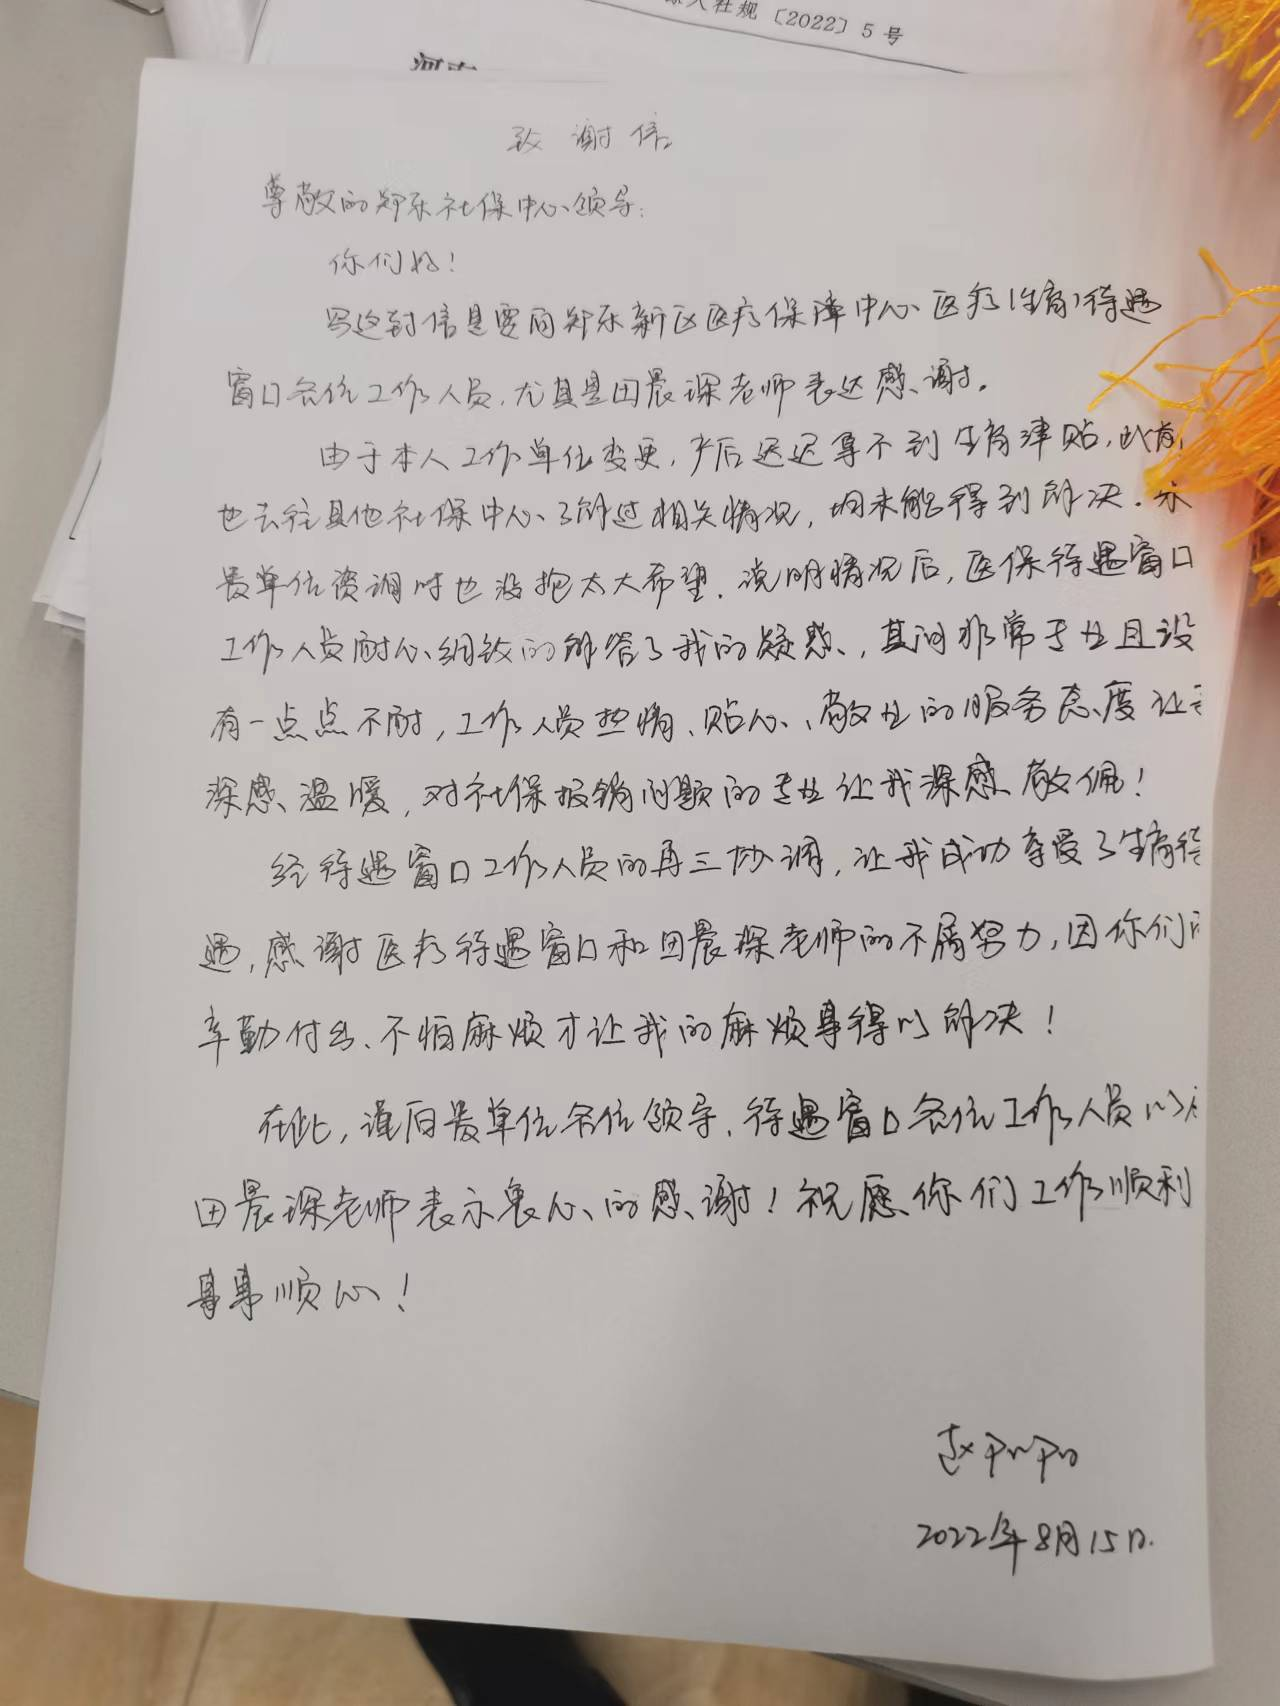 人社规〔2022〕5号
河南
致谢信
尊敬的郑东社保中心领导:
你们好!
写这封信是要向郑东新区医疗保障中心医疗(生育)待遇
窗口各位工作人员,尤其是田晨琛老师表达感谢。
由于本人工作单位变更,产后迟迟拿不到生育津贴,此前
也去往其他社保中心了解过相关情况,均未能得到解决.来
贵单位咨询时也没抱太大希望.说明情况后,医保待遇窗口
工作人员耐心、细致的解答了我的疑惑,其间非常专业且没
有一点点不耐,工作人员热情、贴心、敬业的服务态度让
深感温暖,对社保报销问题的专业让我深感敬佩!
经待遇窗口工作人员的再三协调,让我成功享受了生育待
遇,感谢医疗待遇窗口和田晨琛老师的不屑努力,因你们的
辛勤付出、不怕麻烦才让我的麻烦事得以解决!
在此,谨向贵单位各位领导、待遇窗口各位工作人员以及
田晨琛老师表示衷心的感谢!祝愿你们工作顺利
事事顺心!
赵
2022年8月15日.